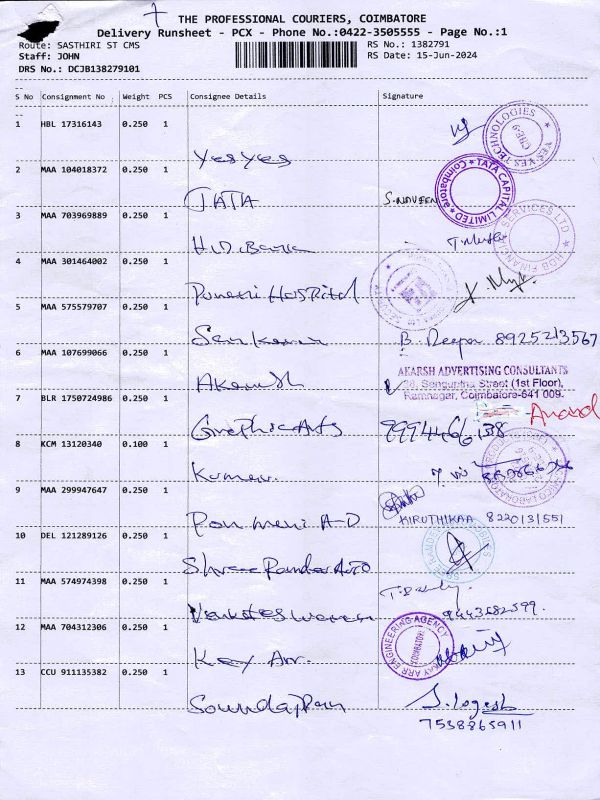 THE PROFESSIONAL COURIERS, COIMBATORE
Delivery Runsheet - PCX - Phone No.:0422-3505555 - Page No.:1
Route: SASTHIRI ST CMS
RS No.: 1382791
Staff: JOHN
RS Date: 15-Jun-2024
DRS No.: DCJB138279101
S No Consignment No Weight PCS Consignee Details Signature
1 HBL 17316143 0.250 1
YES YES TECHNOLOGIES
CBE-9
Yes Yes
2 MAA 104018372 0.250 1
TATA CAPITAL LIMITED
Coimbatore
TATA S. NAVEEN
3 MAA 703969889 0.250 1
HDB FINANCIAL SERVICES LTD
4 MAA 301464002 0.250 1
Hospital
5 MAA 575579707 0.250 1
B. Deepa 8925213567
6 MAA 107699066 0.250 1
AKARSH ADVERTISING CONSULTANTS
38, Senguptha Street (1st Floor),
Ramnagar, Coimbatore-641 009.
Akarsh
7 BLR 1750724986 0.250 1
Anand
Graphic Arts
8 KCM 13120340 0.100 1
Kumar
9 MAA 299947647 0.250 1
KIRUTHIKAA 8220131551
Ponmani A-D
10 DEL 121289126 0.250 1
Shree Auto
11 MAA 574974398 0.250 1
9443682599
Venkateswaran
12 MAA 704312306 0.250 1
KAY ARR ENGINEERING AGENCY
COIMBATORE
Kay Arr.
13 CCU 911135382 0.250 1
S. Logesh
7538865911